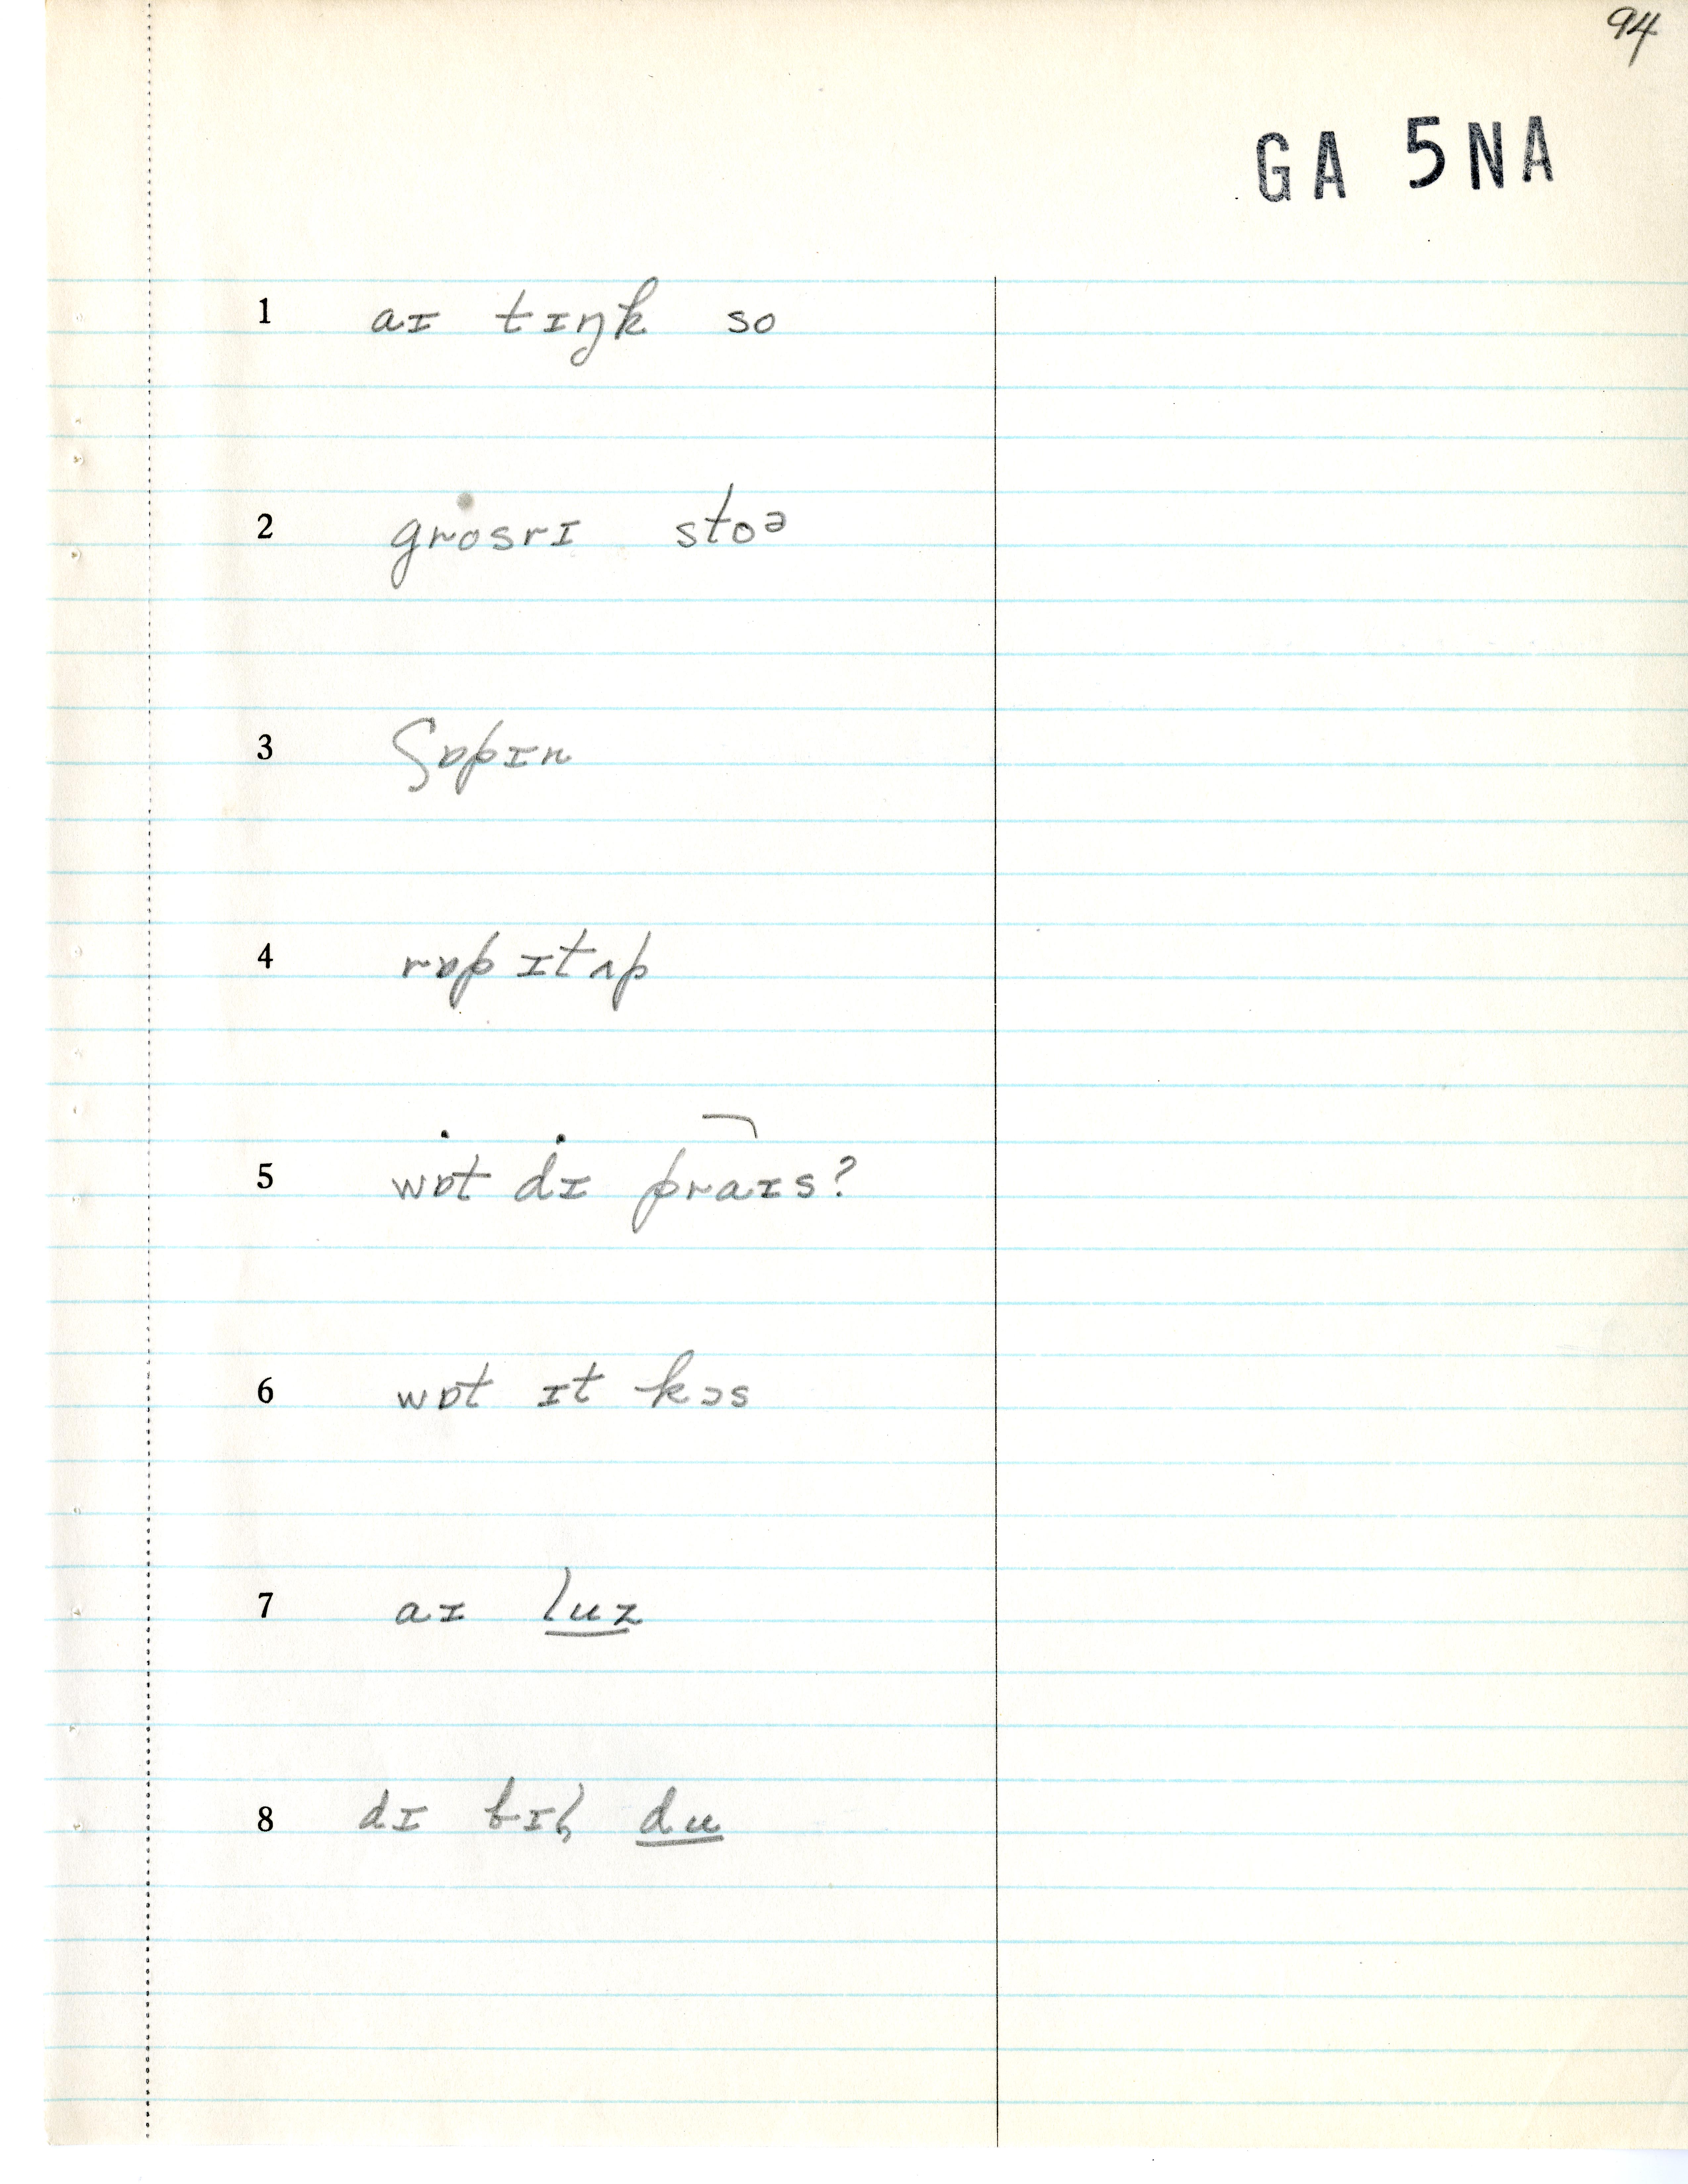 94
GA 5NA
1 aɪ tɪŋk so
2 grosrɪ stoə
3 ʃɒpɪn
4 rɒp ɪt ʌp
5 wɒt dɪ praɪs?
6 wɒt ɪt kɔs
7 aɪ luz
8 dɪ bɪl du